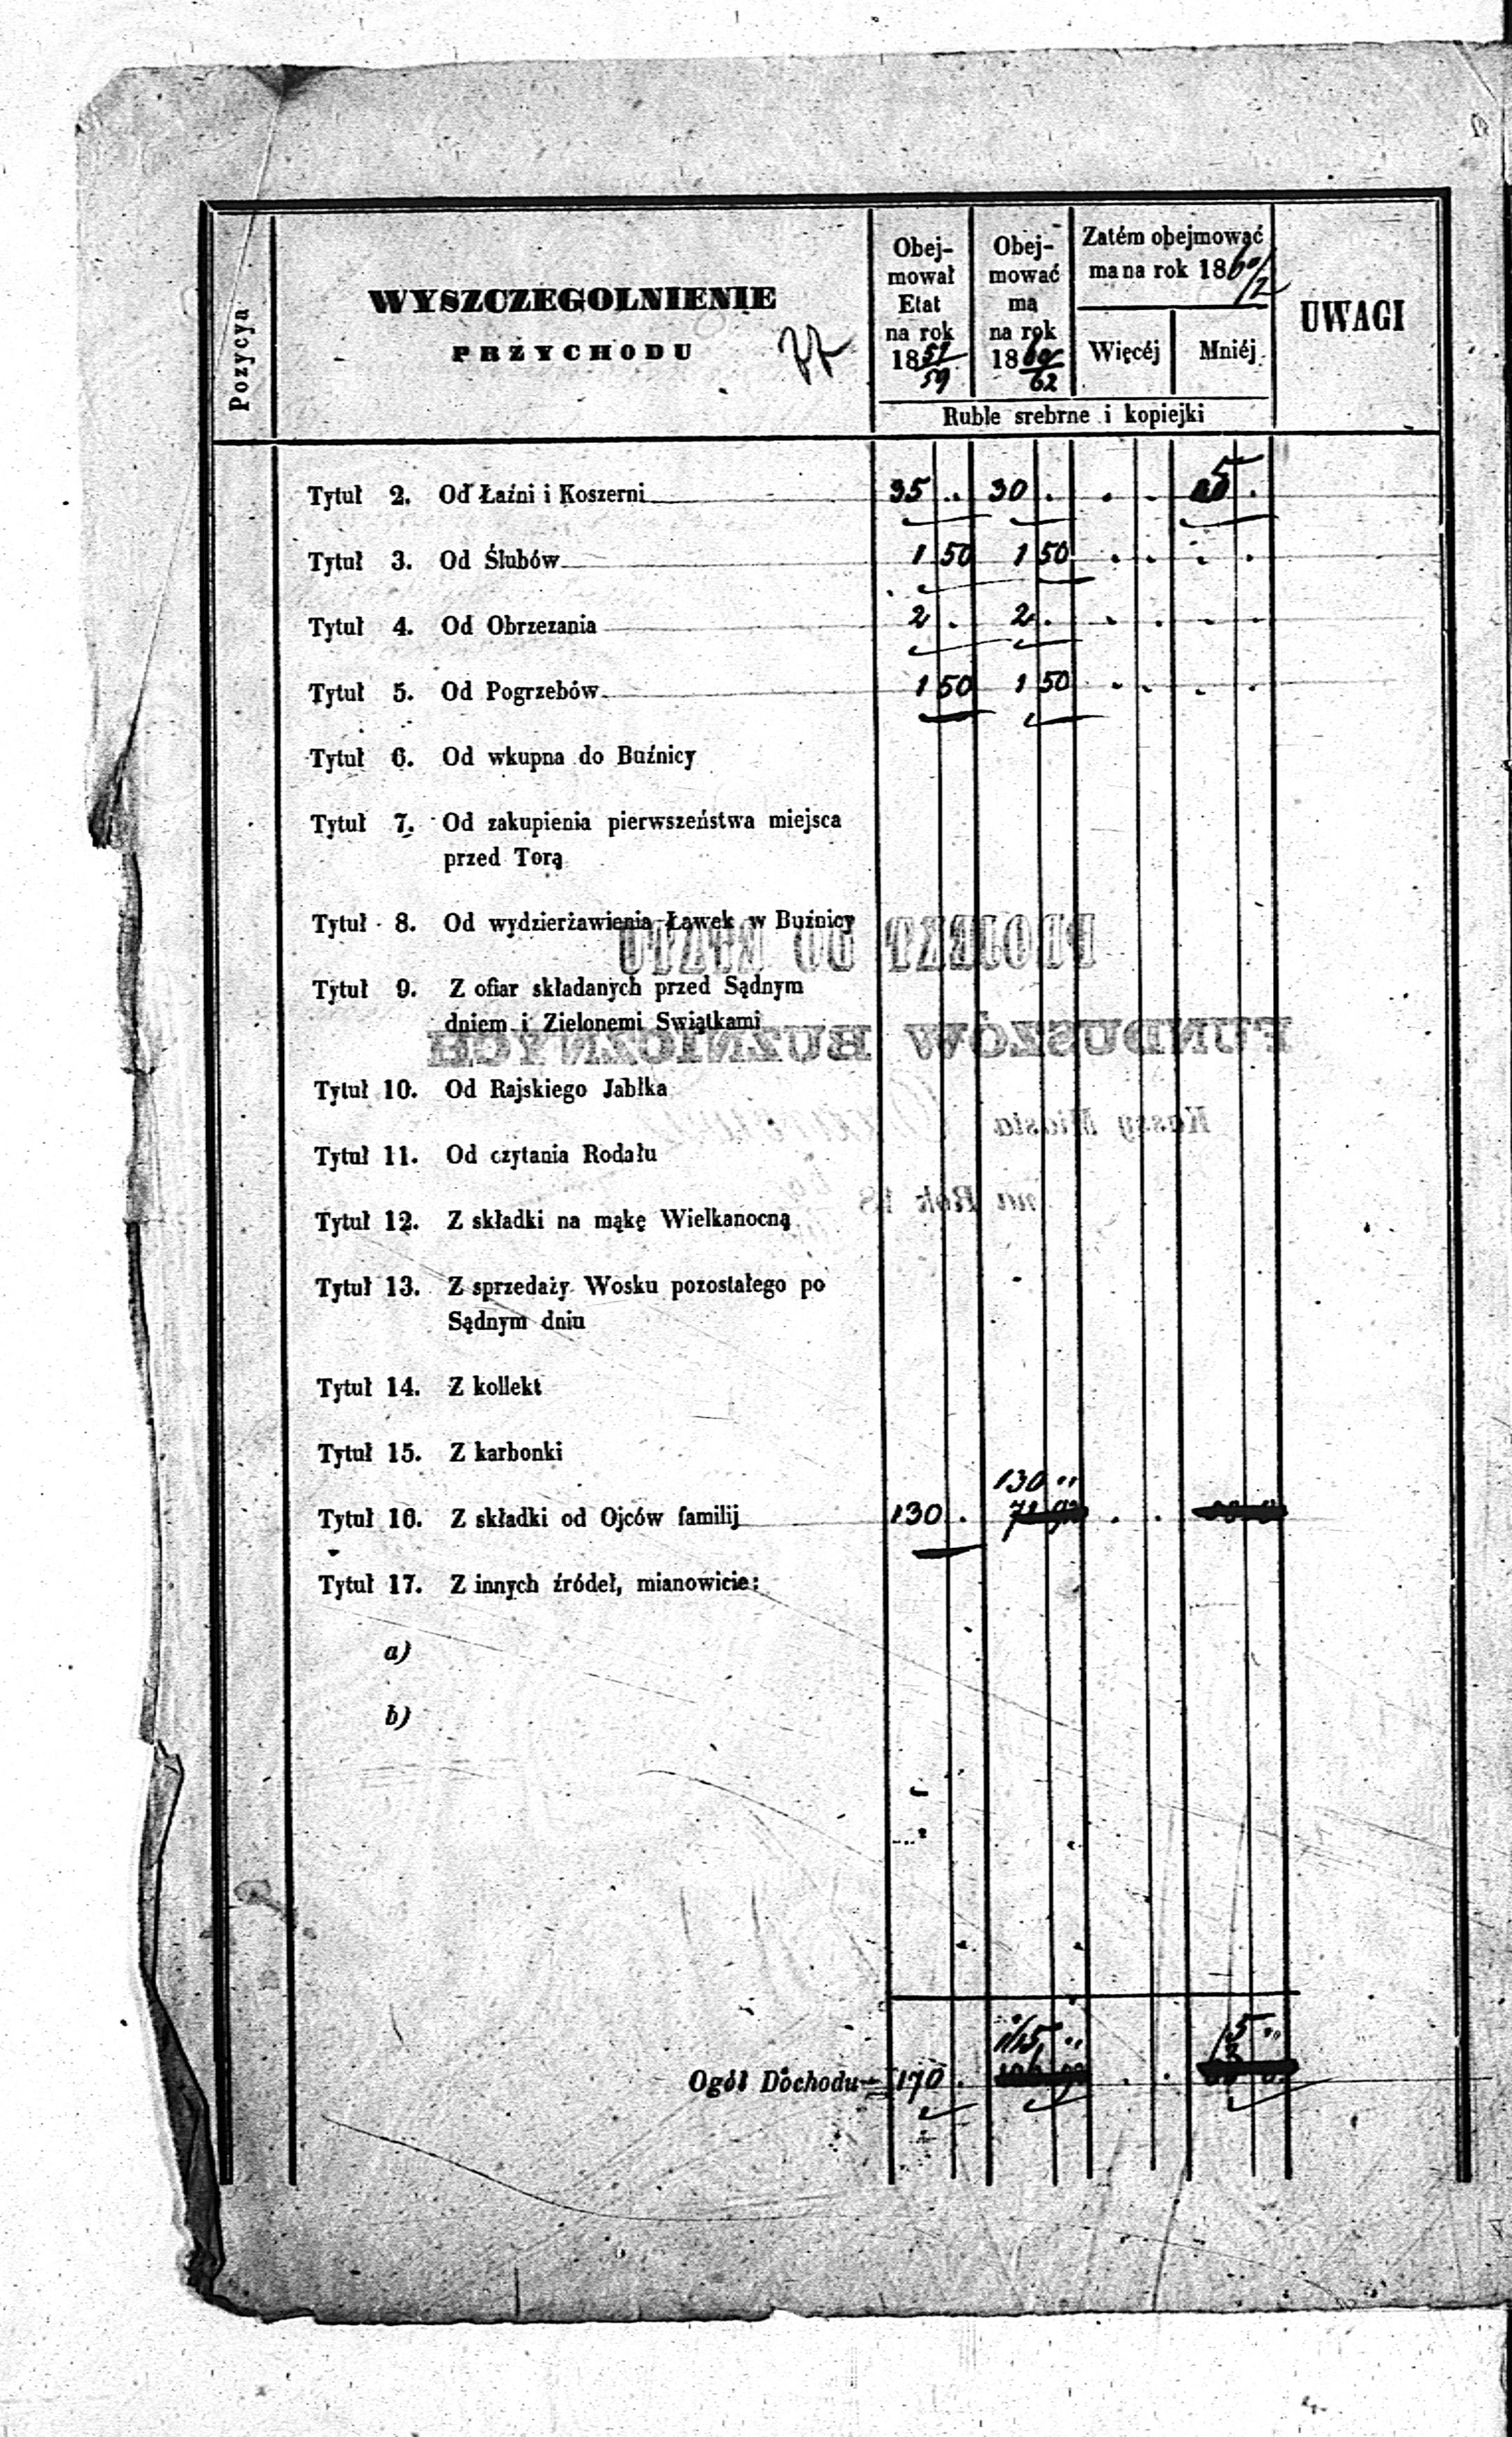 Pozycya
WYSZCZEGOLNIENIE
PRZYCHODU
Obej-
mował
Etat
na rok
1857/59
Obej-
mować
ma
na rok
1860/62
Zatém obejmować
ma na rok 1860/2
Więcéj
Mniéj
UWAGI
Ruble srebrne i kopiejki
Tytuł 2. Od Łaźni i Koszerni 35 .. 30 . . . 5 .
Tytuł 3. Od Ślubów 1 50 1 50 . . . .
Tytuł 4. Od Obrzezania 2 . 2 . . . . .
Tytuł 5. Od Pogrzebów 1 50 1 50 . . . .
Tytuł 6. Od wkupna do Buźnicy
Tytuł 7. Od zakupienia pierwszeństwa miejsca
przed Torą
Tytuł 8. Od wydzierżawienia Ławek w Buźnicy
PROJEKT DO ETATU
Tytuł 9. Z ofiar składanych przed Sądnym
dniem i Zielonemi Swiątkami
FUNDUSZÓW BUZNICZNYCH
Tytuł 10. Od Rajskiego Jabłka
Kassy Miasta
Tytuł 11. Od czytania Rodału
na Rok 18
Tytuł 12. Z składki na mąkę Wielkanocną
Tytuł 13. Z sprzedaży Wosku pozostałego po
Sądnym dniu
Tytuł 14. Z kollekt
Tytuł 15. Z karbonki
130 ..
Tytuł 16. Z składki od Ojców familij 130 . . .
Tytuł 17. Z innych źródeł, mianowicie:
a)
b)
5 ..
Ogół Dochodu 170 . . .